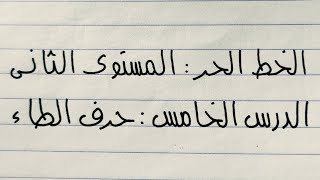 الخط الحر : المستوى الثانى
الدرس الخامس : حرف الطاء